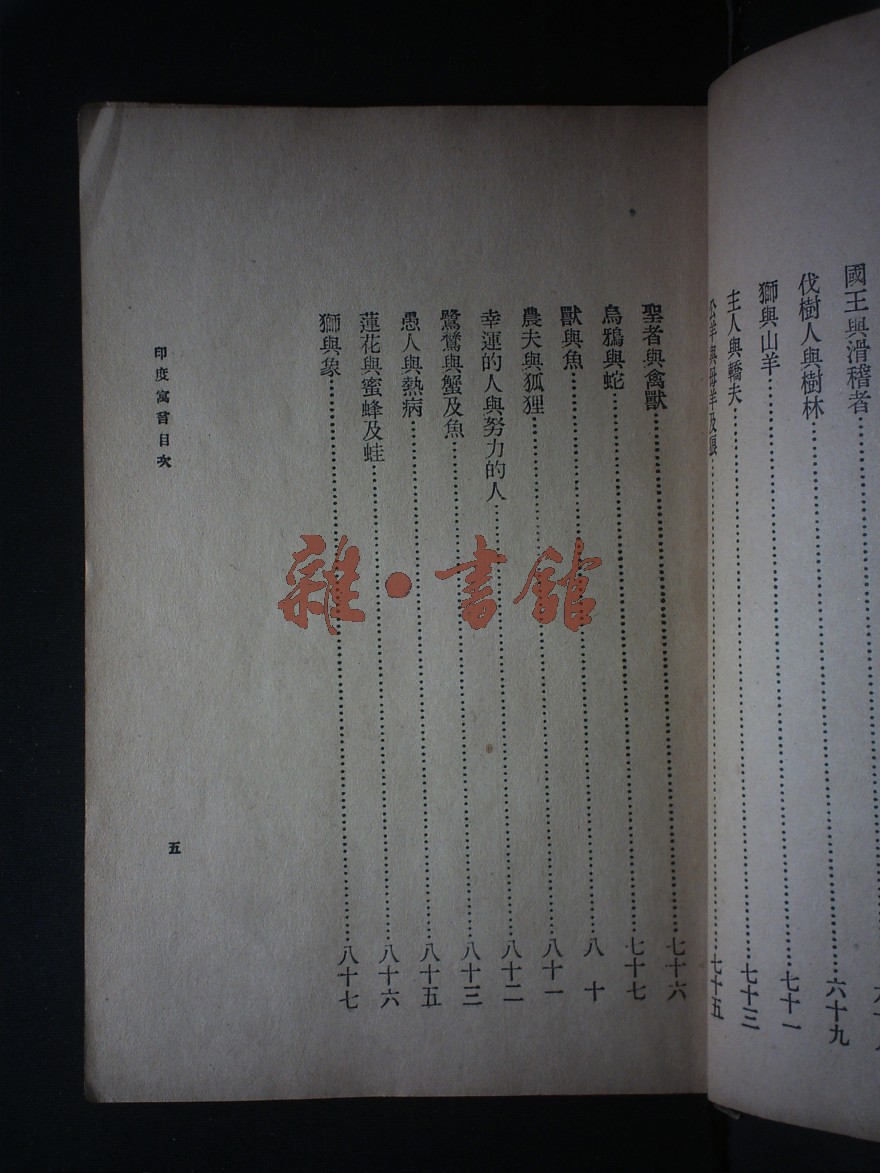 國王與滑稽者
伐樹人與樹林……六十九
獅與山羊……七十一
主人與轎夫……七十三
公羊與母羊及狼……七十五
聖者與禽獸……七十六
烏鴉與蛇……七十七
獸與魚……八十
農夫與狐狸……八十一
幸運的人與努力的人……八十二
鷺鷥與蟹及魚……八十三
愚人與熱病……八十五
蓮花與蜜蜂及蛙……八十六
獅與象……八十七
印度寓言目次
五
雜·書館